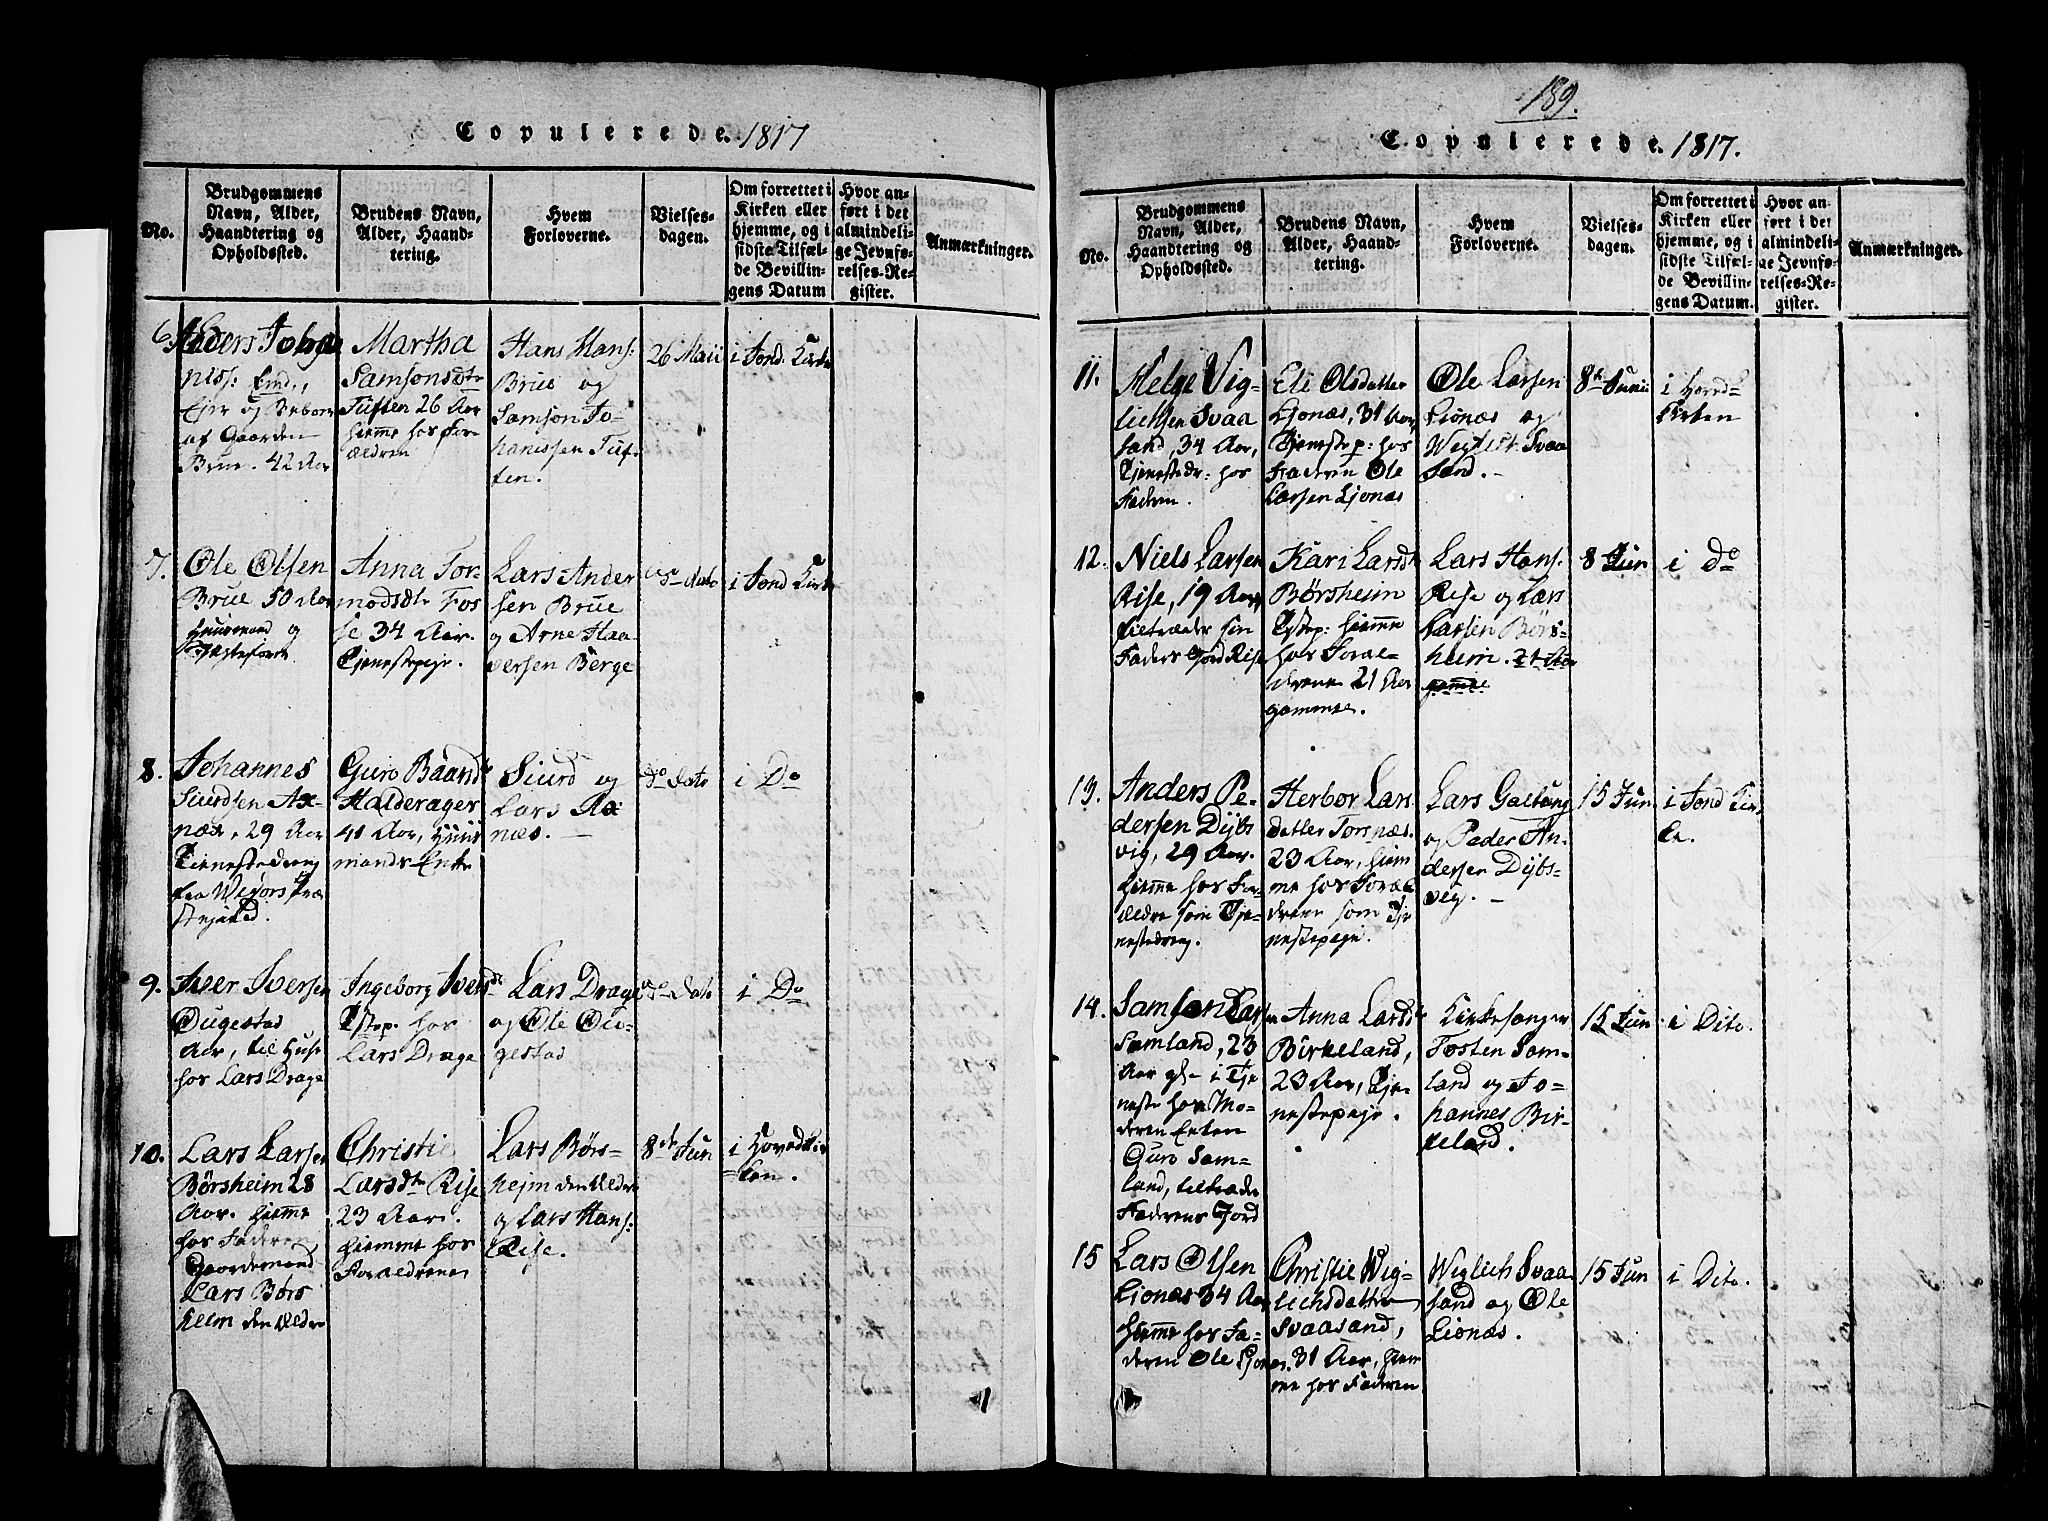 Copulerede. 1817
No.
Brudgommens
Navn, Alder,
Haandtering og
Opholdssted.
Brudens Navn,
Alder, Haand-
tering.
Hvem
Forloverne.
Vielses-
dagen.
Om forrettet i
Kirken eller
hjemme, og i
sidste Tilfæl-
de Bevillin-
gens Datum
Hvor an-
ført i det
almindeli-
ge Jevnfø-
relses-Re-
gister.
Anmærkninger.
6.
Anders Joha
Ejer og Beboer
af Gaarden
Brue. 42 Aar
Martha
Samsonsdtr
Tuften 26 Aar
hiemme hos For
ældren
Hans Hans:
Brue og
Samson Jo-
hanissen Tuf-
ten.
26 Maii
i Jond: Kirke
7.
Ole Olsen
Brue 50 Aar
Huusmand og
Anna Tor-
modsdtr Fos
se 34 Aar.
Tjenestepige.
Lars Ander
sen Brue
og Arne Haa-
versen Berge
dato
i Jond Kirke
8.
Johannes
Siurdsen Ax-
næs, 29 Aar
Tienestedreng
fra Wigørs Præ
stegield.
Guro Baardr
Halderager
41 Aar, Huus
mands Enke
Siurd og
Lars Ax
næs. —
Do Dato
i Do
9.
Iver Iversen
Øugestad
Aar, til Huse
hos Lars Drage
Ingeborg Iversdr
Tstep. hos
Lars Drage
Lars Drage
og Ole Øu-
gestad
do Dato
i Do
10.
Lars Larsen
Børsheim 28
Aar. hiemme
hos Faderen,
Gaardemand
Lars Børs
heim den ældre
Christie
Larsdtr Rise
23 Aar.
hiemme hos
Foraeldrene
Lars Børs-
hejm den ældre
og Lars Hans:
Rise.
8de Jun
i Hovedkir
=ken.
189.
Copulerede. 1817.
No.
Brudgommens
Navn, Alder,
Haandtering og
Opholdssted.
Brudens Navn,
Alder, Haand-
tering.
Hvem
Forloverne.
Vielses-
dagen.
Om forrettet i
Kirken eller
hjemme, og i
sidste Tilfæl-
de Bevillin-
gens Datum.
Hvor an-
ført i det
almindeli-
ge Jevnfø-
relses-Re-
gister.
Anmærkninger.
11.
Helge Vig-
lichsen Svaa
sand, 34 Aar,
Tjenestedr: hos
Faderen.
Eli Olsdatter
Ljonæs, 31 Aar,
Tjenestep: hos
Faderen Ole
Larsen Ljonæs
Ole Larsen
Lionæs og
Svaa
sand. —
8de Junii
i Hovedk
Kirken
12.
Niels Larsen
Rise, 19 Aar,
tiltræder sin
Faders Jord Rise
Kari Larsdr
Børsheim
Tstep: hiemme
hos Foræl-
drene 21 Aar
gammel.
Lars Hans:
Rise og Lars
Larsen Børs-
heim.
8 Jun
i Do
13.
Anders Pe-
dersen Dybs
vig, 29 Aar.
hiemme hos For-
ældre som Tje-
nestedreng.
Herbor Lars
datter Torsnæs.
23 Aar, hiem
me hos Foræl
drene som Tje
nestepige.
Lars Galtung
og Peder An-
dersen Dybs-
vig. —
15 Jun
i Jond Kir
ke.
14.
Samson Larsen
Samland, 23
Aar i Tje
neste hos Mo-
deren Enken
Guro Sam-
land, tiltræder
Faderens Jord
Anna Larsdr
Birkeland,
23 Aar, Tje-
nestepige.
Kirkesanger
Tosten Sam-
land og Jo-
hannes Bir-
keland.
15 Jun
i Dito.
15
Lars Olsen
Lionæs 34 Aar
hiemme hos Fa-
deren Ole Ljonæs.
Christie Wig-
lichsdatter
Svaasand,
31 Aar, hiem
me hos Faderen
Wiglich Svaa
sand og Ole
Lionæs.
15 Jun
i Dito.